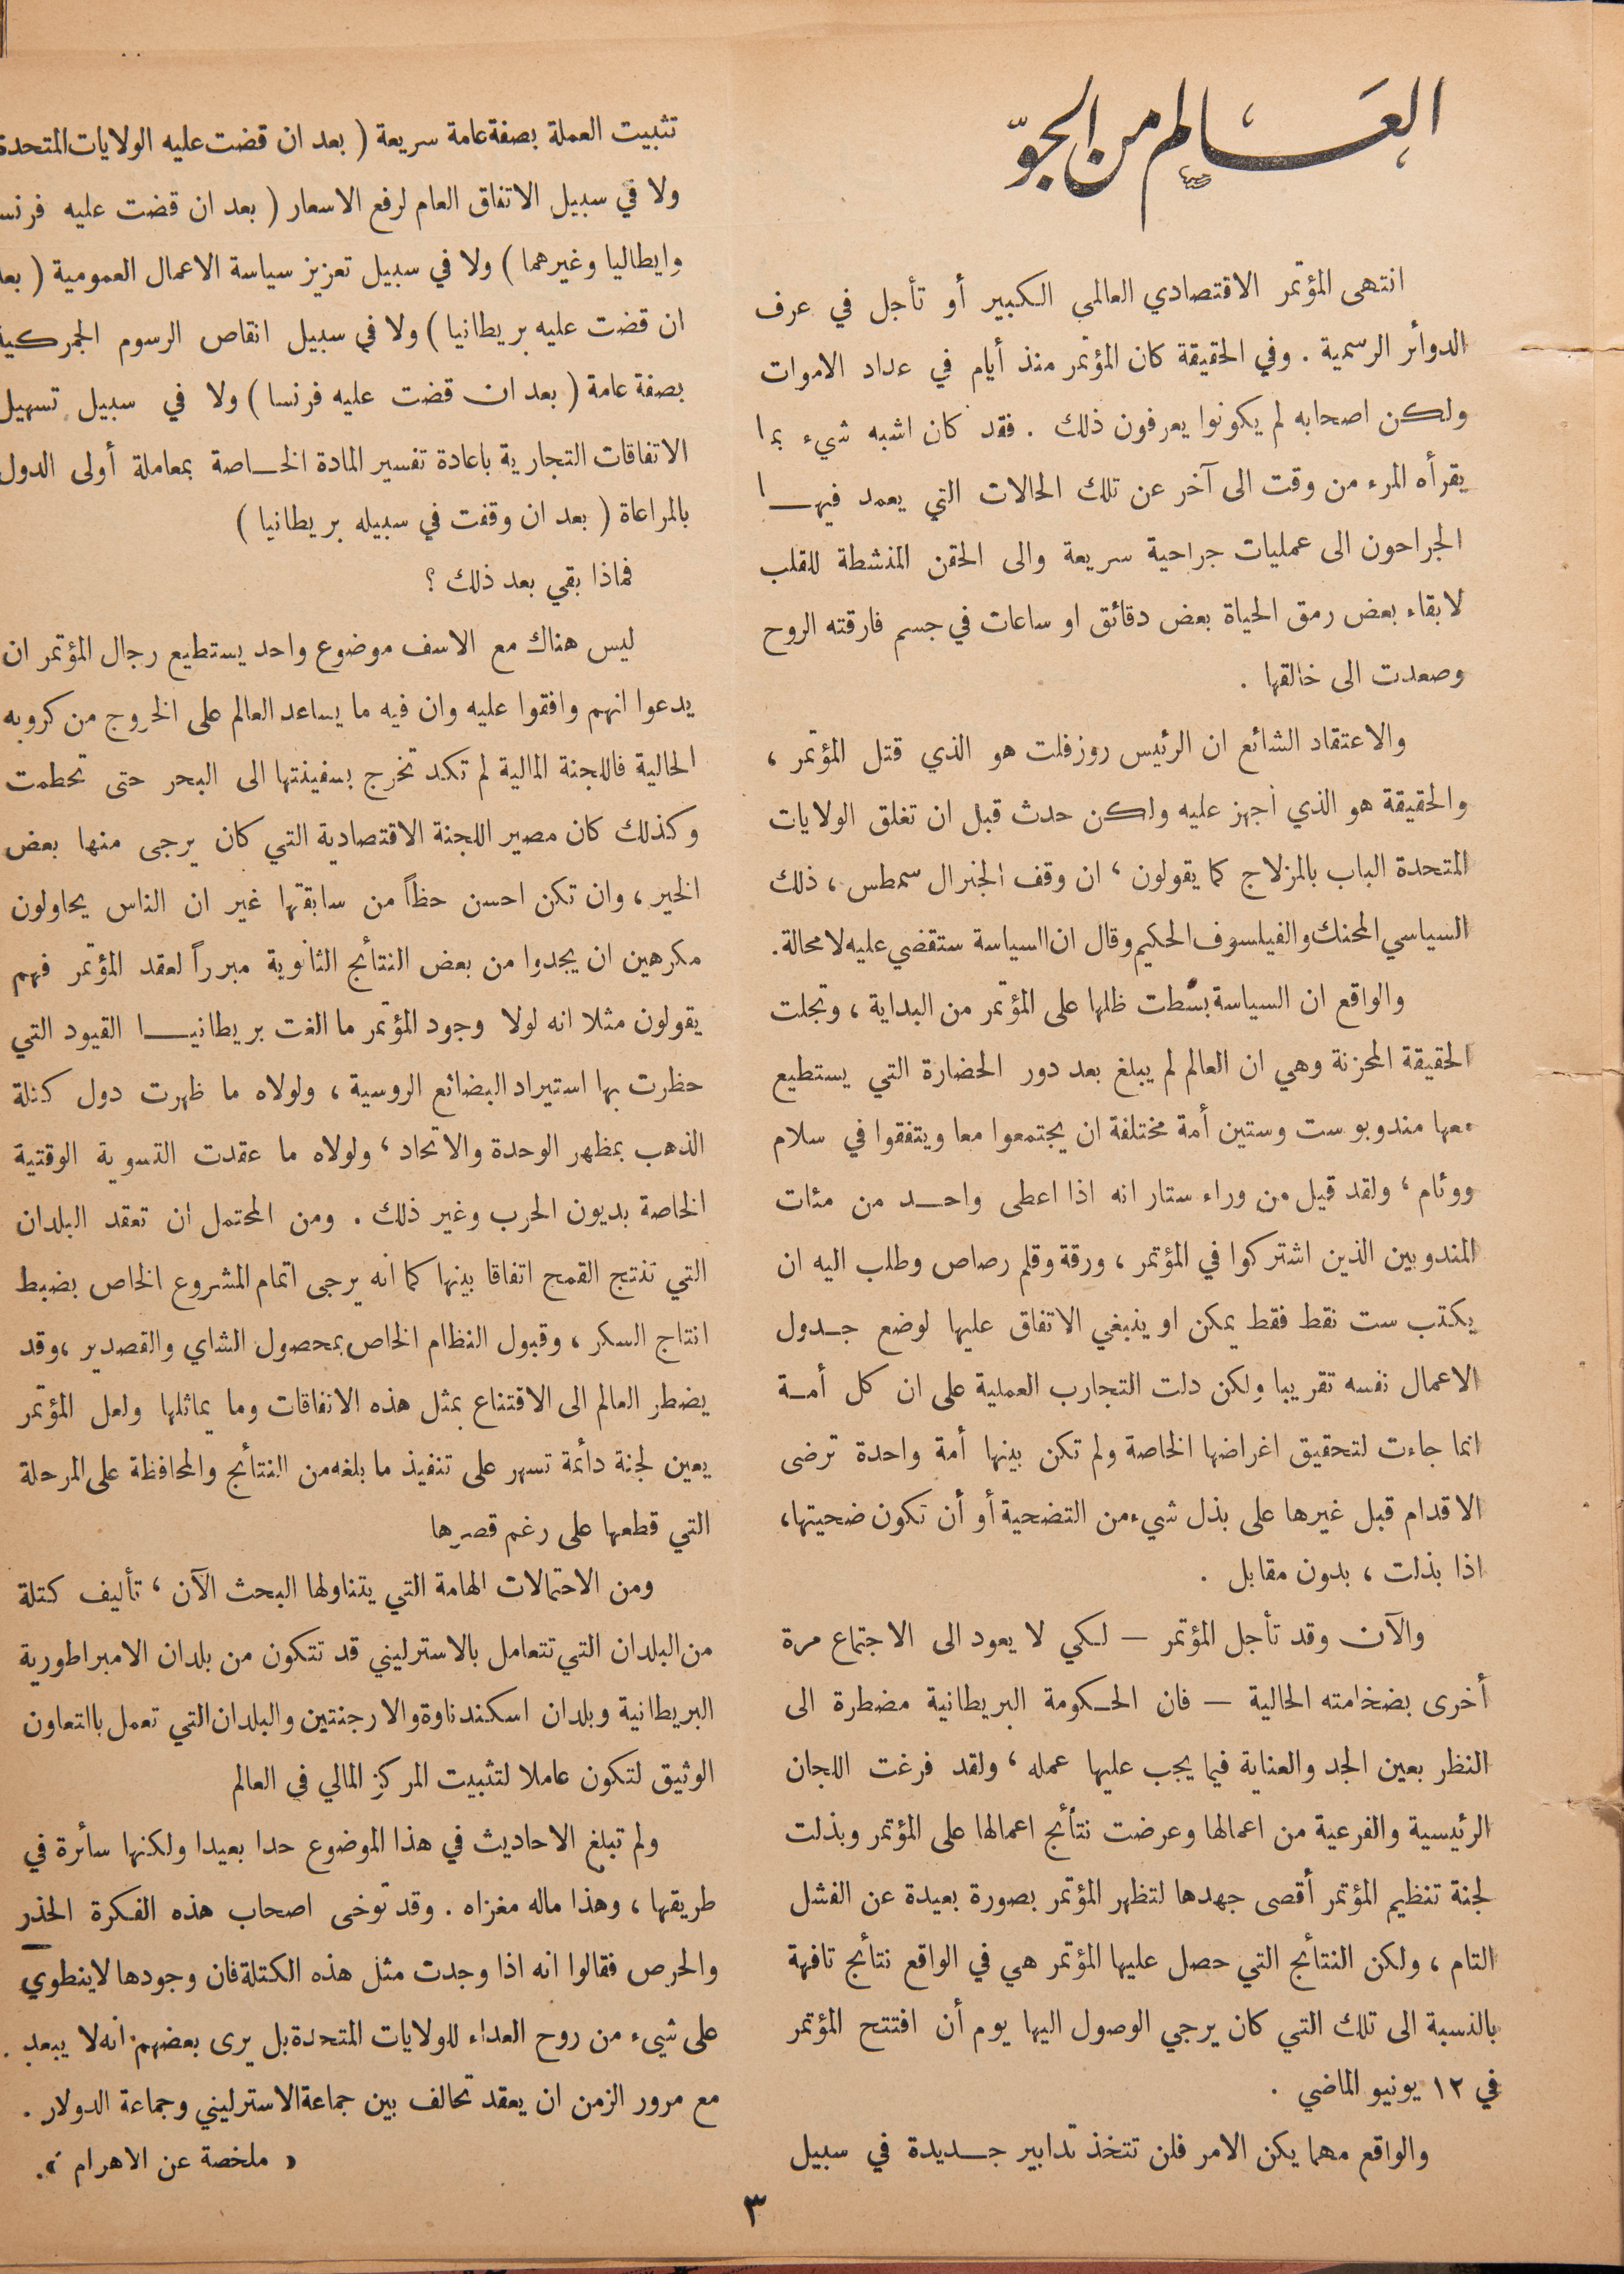 العالم من الجوّ
انتهى المؤتمر الاقتصادي العالمي الكبير أو تأجل في عرف
الدوائر الرسمية . وفي الحقيقة كان المؤتمر منذ أيام في عداد الاموات
ولكن اصحابه لم يكونوا يعرفون ذلك . فقد كان اشبه شيء بما
يقرأه المرء من وقت الى آخر عن تلك الحالات التي يعمد فيها
الجراحون الى عمليات جراحية سريعة والى الحقن المنشطة للقلب
لابقاء بعض رمق الحياة بعض دقائق او ساعات في جسم فارقته الروح
وصعدت الى خالقها .
والاعتقاد الشائع ان الرئيس روزفلت هو الذي قتل المؤتمر ،
والحقيقة هو الذي اجهز عليه ولكن حدث قبل ان تغلق الولايات
المتحدة الباب بالمزلاج كما يقولون ، ان وقف الجنرال سمطس ، ذلك
السياسي المحنك والفيلسوف الحكيم وقال ان السياسة ستقضي عليه لا محالة .
والواقع ان السياسة بسطت ظلها على المؤتمر من البداية ، وتجلت
الحقيقة المحزنة وهي ان العالم لم يبلغ بعد دور الحضارة التي يستطيع
معها مندوبو ست وستين أمة مختلفة ان يجتمعوا معا ويتفقوا في سلام
ووئام ، ولقد قيل من وراء ستار انه اذا اعطى واحد من مئات
المندوبين الذين اشتركوا في المؤتمر ، ورقة وقلم رصاص وطلب اليه ان
يكتب ست نقط فقط يمكن او ينبغي الاتفاق عليها لوضع جدول
الاعمال نفسه تقريبا ولكن دلت التجارب العملية على ان كل أمة
انما جاءت لتحقيق اغراضها الخاصة ولم تكن بينها أمة واحدة ترضى
الاقدام قبل غيرها على بذل شيء من التضحية أو أن تكون ضحيتها ،
اذا بذلت ، بدون مقابل .
والآن وقد تأجل المؤتمر — لكي لا يعود الى الاجتماع مرة
أخرى بضخامته الحالية — فان الحكومة البريطانية مضطرة الى
النظر بعين الجد والعناية فيما يجب عليها عمله ، ولقد فرغت اللجان
الرئيسية والفرعية من اعمالها وعرضت نتائج اعمالها على المؤتمر وبذلت
لجنة تنظيم المؤتمر أقصى جهدها لتظهر المؤتمر بصورة بعيدة عن الفشل
التام ، ولكن النتائج التي حصل عليها المؤتمر هي في الواقع نتائج تافهة
بالنسبة الى تلك التي كان يرجي الوصول اليها يوم أن افتتح المؤتمر
في ١٢ يونيو الماضي .
والواقع مهما يكن الامر فلن تتخذ تدابير جديدة في سبيل
تثبيت العملة بصفة عامة سريعة ( بعد ان قضت عليه الولايات المتحدة
ولا في سبيل الاتفاق العام لرفع الاسعار ( بعد ان قضت عليه فرنسا
وايطاليا وغيرهما ) ولا في سبيل تعزيز سياسة الاعمال العمومية ( بعد
ان قضت عليه بريطانيا ) ولا في سبيل انقاص الرسوم الجمركية
بصفة عامة ( بعد ان قضت عليه فرنسا ) ولا في سبيل تسهيل
الاتفاقات التجارية باعادة تفسير المادة الخاصة بمعاملة أولى الدول
بالمراعاة ( بعد ان وقفت في سبيله بريطانيا )
فماذا بقي بعد ذلك ؟
ليس هناك مع الاسف موضوع واحد يستطيع رجال المؤتمر ان
يدعوا انهم وافقوا عليه وان فيه ما يساعد العالم على الخروج من كروبه
الحالية فاللجنة المالية لم تكد تخرج بسفينتها الى البحر حتى تحطمت
وكذلك كان مصير اللجنة الاقتصادية التي كان يرجى منها بعض
الخير ، وان تكن احسن حظاً من سابقتها غير ان الناس يحاولون
مكرهين ان يجدوا من بعض النتائج الثانوية مبرراً لعقد المؤتمر فهم
يقولون مثلا انه لولا وجود المؤتمر ما الغت بريطانيا القيود التي
حظرت بها استيراد البضائع الروسية ، ولولاه ما ظهرت دول كتلة
الذهب بمظهر الوحدة والاتحاد ، ولولاه ما عقدت التسوية الوقتية
الخاصة بديون الحرب وغير ذلك . ومن المحتمل ان تعقد البلدان
التي تنتج القمح اتفاقا بينها كما انه يرجى اتمام المشروع الخاص بضبط
انتاج السكر ، وقبول النظام الخاص بمحصول الشاي والقصدير ، وقد
يضطر العالم الى الاقتناع بمثل هذه الاتفاقات وما يماثلها ولعل المؤتمر
يعين لجنة دائمة تسهر على تنفيذ ما بلغه من النتائج والمحافظة على المرحلة
التي قطعها على رغم قصرها
ومن الاحتمالات الهامة التي يتناولها البحث الآن ، تأليف كتلة
من البلدان التي تتعامل بالاسترليني قد تتكون من بلدان الامبراطورية
البريطانية وبلدان اسكندناوة والارجنتين والبلدان التي تعمل بالتعاون
الوثيق لتكون عاملا لتثبيت المركز المالي في العالم
ولم تبلغ الاحاديث في هذا الموضوع حدا بعيدا ولكنها سائرة في
طريقها ، وهذا ماله مغزاه . وقد توخى اصحاب هذه الفكرة الحذر
والحرص فقالوا انه اذا وجدت مثل هذه الكتلة فان وجودها لا ينطوي
على شيء من روح العداء للولايات المتحدة بل يرى بعضهم انه لا يبعد .
مع مرور الزمن ان يعقد تحالف بين جماعة الاسترليني وجماعة الدولار .
« ملخصة عن الاهرام » .
٣